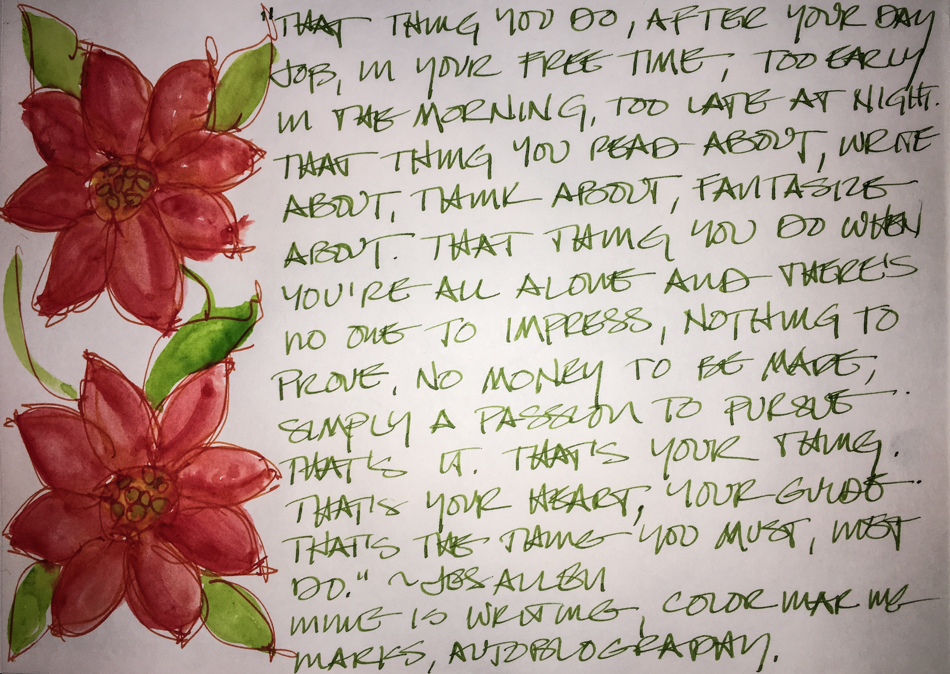 "THAT THING YOU DO, AFTER YOUR DAY
JOB, IN YOUR FREE TIME, TOO EARLY
IN THE MORNING, TOO LATE AT NIGHT.
THAT THING YOU READ ABOUT, WRITE
ABOUT, THINK ABOUT, FANTASIZE
ABOUT. THAT THING YOU DO WHEN
YOU'RE ALL ALONE AND THERE'S
NO ONE TO IMPRESS, NOTHING TO
PROVE, NO MONEY TO BE MADE,
SIMPLY A PASSION TO PURSUE.
THAT'S IT. THAT'S YOUR THING.
THAT'S YOUR HEART, YOUR GUIDE.
THAT'S THE THING YOU MUST, MUST
DO." ~JES ALLEN
MINE IS WRITING, COLOR
MARKS, AUTOBIOGRAPHY.